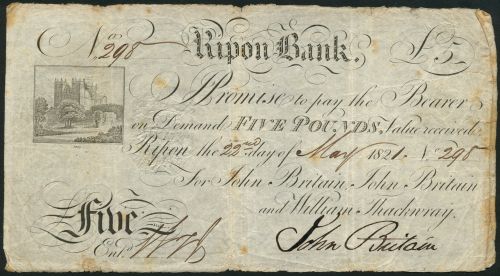 No. 298 Ripon Bank. £5
I Promise to pay the Bearer
on Demand FIVE POUNDS, Value received
Ripon the 22nd day of May 1821. No. 298
For John Britain, John Britain
and William Thackwray.
Five
Entd.
John Britain